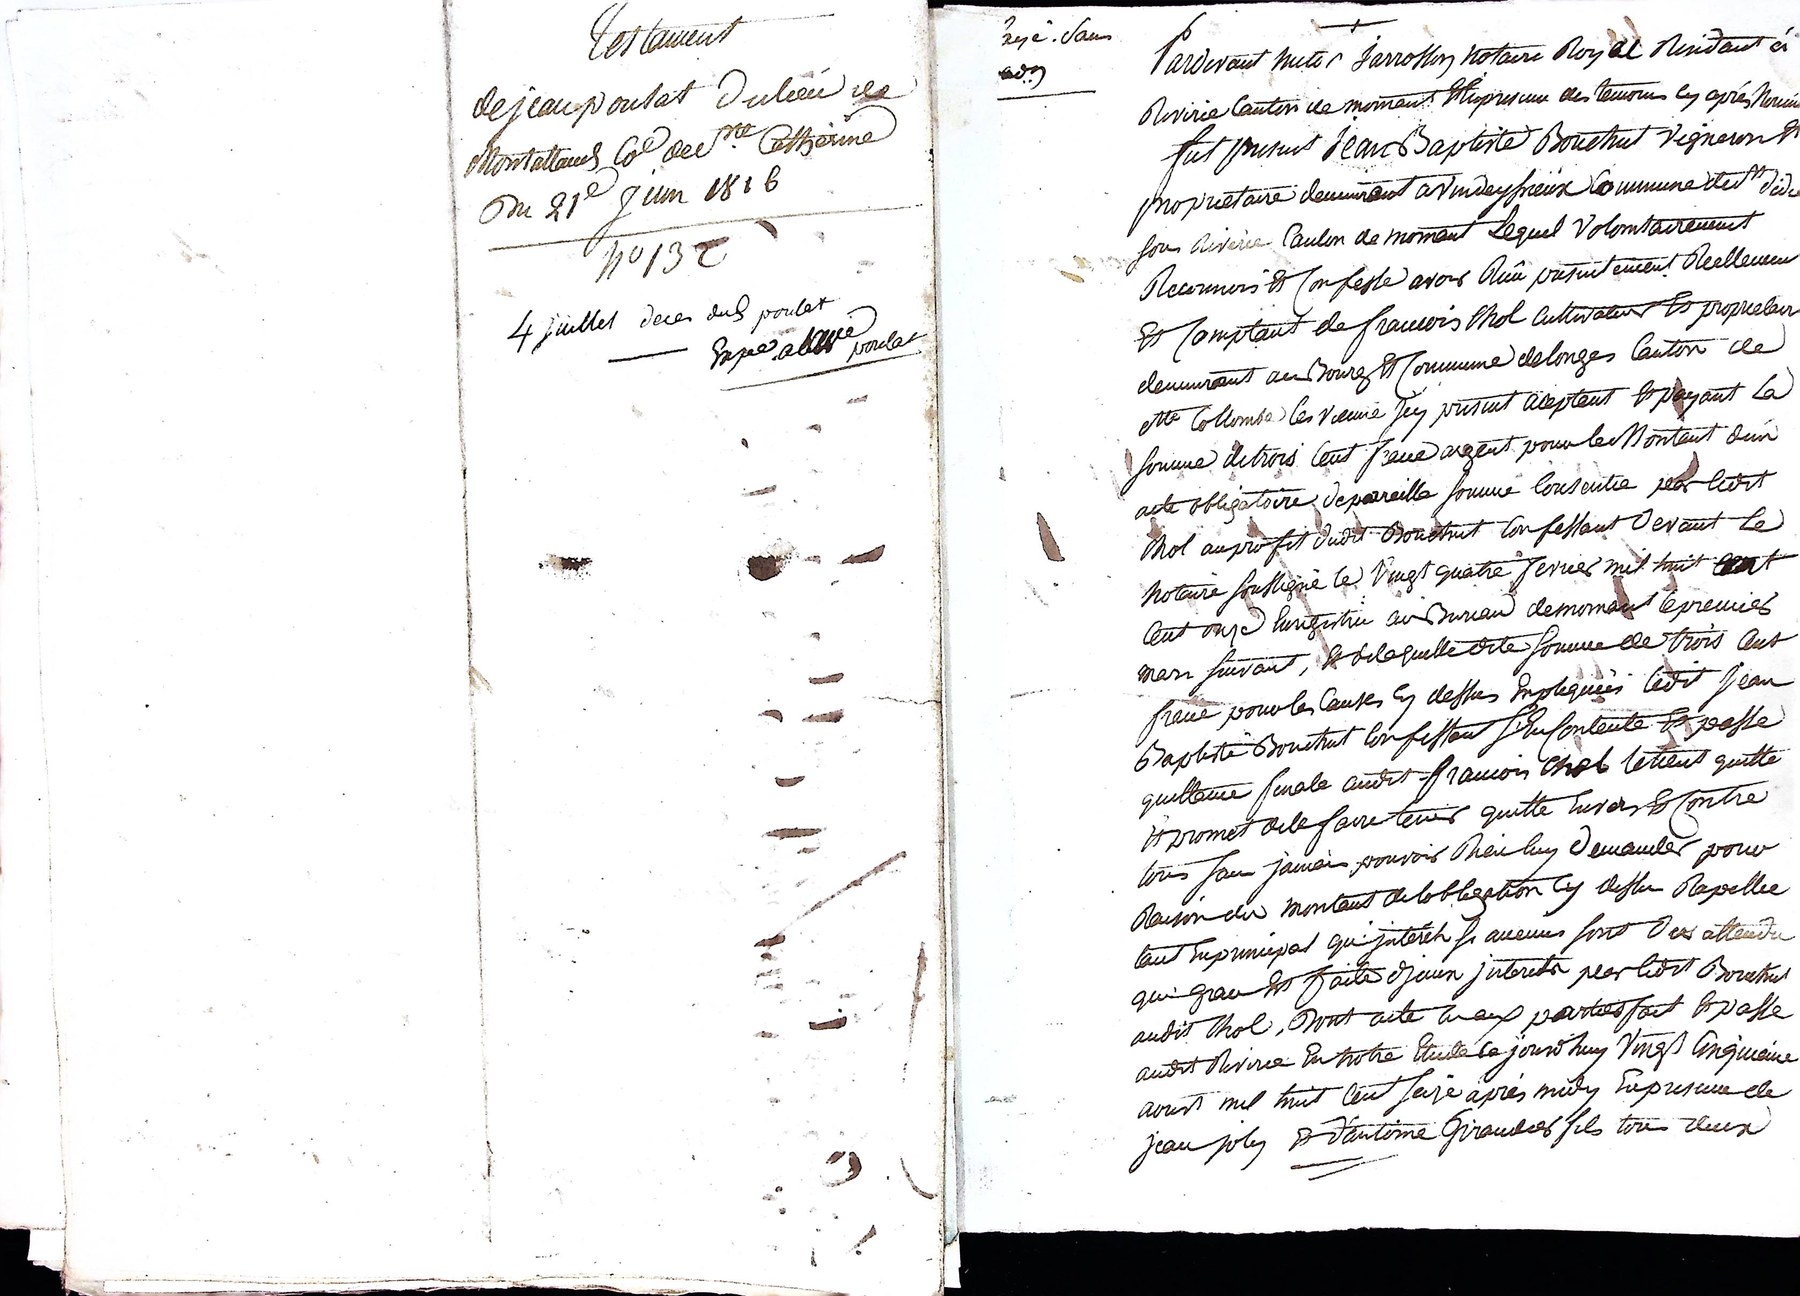 Testament
de jean poulat du lieu de
Montallaud Co.e de Ste Catherine
Du 21e Juin 1816
No 132
4 juillet deces dud poulat
Expee. a poulat
Pardevant Jarrosson Notaire Royal Residant à
Riverie Canton de mornant Et En presence des temoins cy après
fut present Jean Baptiste Bouchut vigneron Et
propriétaire demeurant a commune de St didier
sous Riverie Canton de mornant Lequel Volontairement
Reconnois Et Confesse avoir Reçu presentement Reellement
Et Comptant de francois Chol cultivateur Et proprietaire
demeurant au Bourg Et Commune de longes Canton de
Ste Collombe les vienne Jcy present aceptant Et payant La
somme de trois Cent franc argent pour le Montant d'un
acte obligatoire de pareille somme Consentie par ledit
Chol au profit dudit Bouchut Confessant Devant Le
Notaire soussigné le Vingt quatre fevrier mil huit cent
Cent onze Enregistré au Bureau de mornant le premier
mars suivant, Et de laquelle dite somme de trois Cent
franc pour les Causes cy dessus Expliquées ledit Jean
Baptiste Bouchut Confessant s'En Contente Et passe
quittance finale audit francois Chol le tient quitte
Et promet de le faire tenir quitte Envers Et Contre
tous sans jamais pouvoir Rien luy Demander pour
Raison du montant de lobligation cy dessus Rapellée
tant En principal qu'jnterets si aucuns sont Dus attendu
qui grace Et faite d'jceux jnterets par ledit Bouchut
audit Chol, Dont acte aux parties fait Et passé
audit Riverie En Notre Etude Ce jourd'huy Vingt Cinquieme
aoust mil huit Cent seize après midy En presence de
jean joly Et d'antoine Giraudier fils tous deux